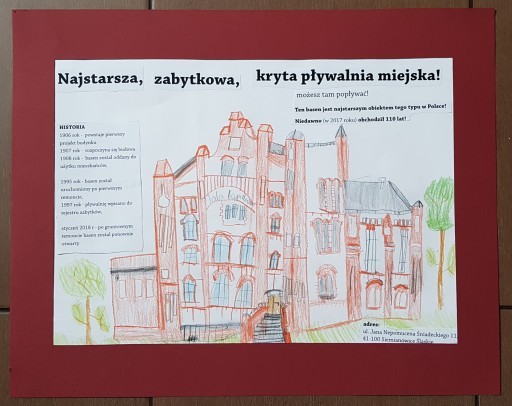 Najstarsza, zabytkowa, kryta pływalnia miejska!
możesz tam popływać!
Ten basen jest najstarszym obiektem tego typu w Polsce!
Niedawno (w 2017 roku) obchodził 110 lat!
HISTORIA
1906 rok - powstaje pierwszy
projekt budynku
1907 rok - rozpoczyna się budowa
1908 rok - basen został oddany do
użytku mieszkańców,
1995 rok - basen został
uruchomiony po pierwszym
remoncie,
1997 rok - pływalnię wpisano do
rejestru zabytków,
styczeń 2018 r - po gruntownym
remoncie basen został ponownie
otwarty
adres:
ul. Jana Nepomucena Śniadeckiego 11
41-100 Siemianowice Śląskie